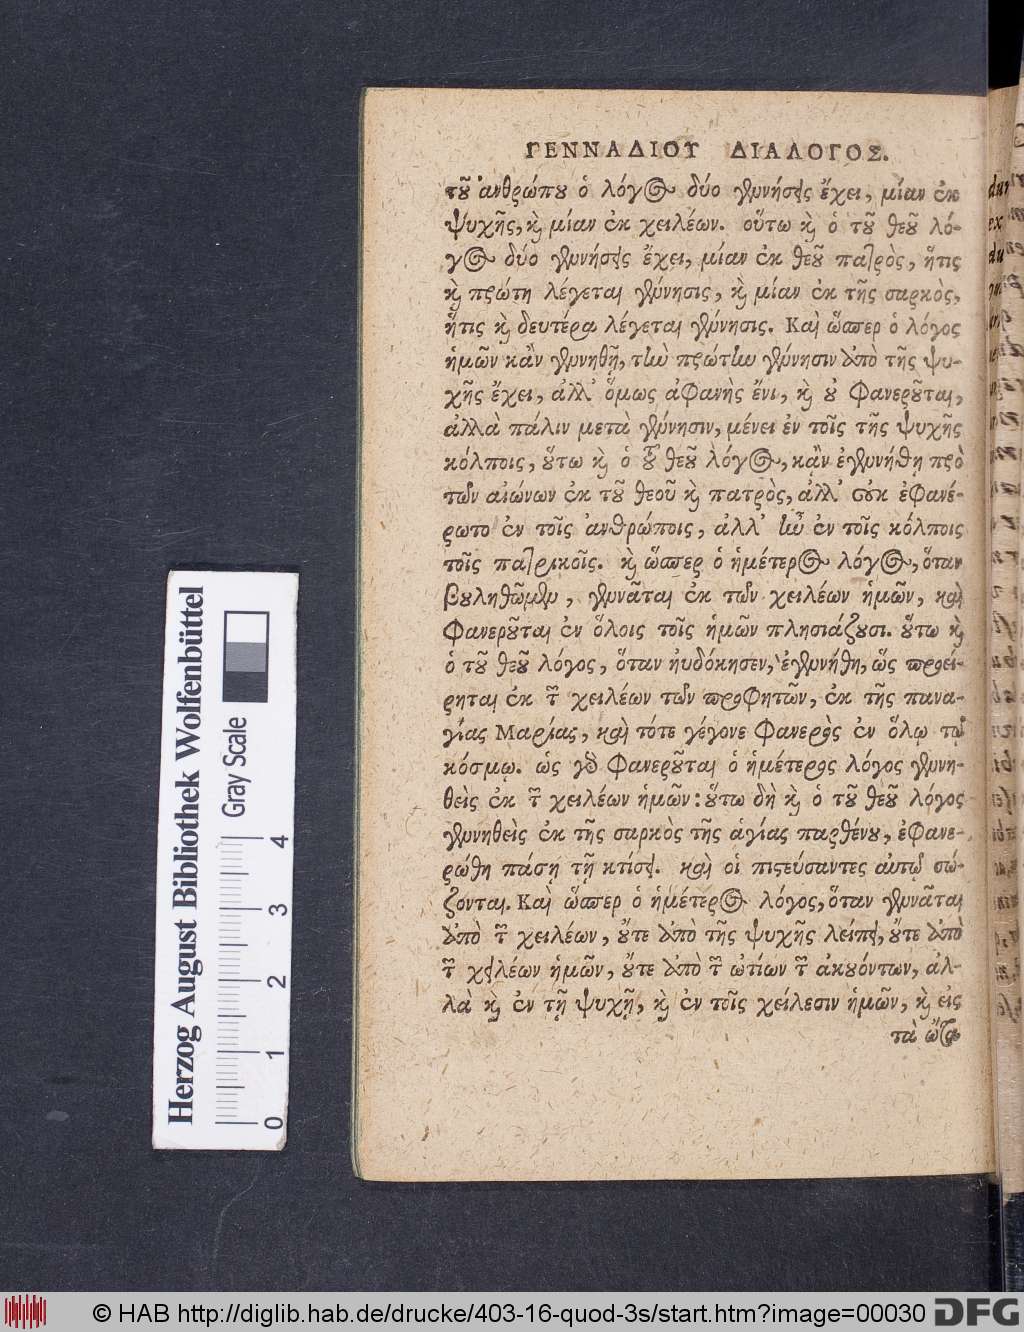 ΓΕΝΝΑΔΙΟΥ ΔΙΑΛΟΓΟΣ.
τοῦ ἀνθρώπου ὁ λόγος δύο γεννήσεις ἔχει, μίαν ἐκ
ψυχῆς, καὶ μίαν ἐκ χειλέων. οὕτω καὶ ὁ τοῦ θεοῦ λό-
γος δύο γεννήσεις ἔχει, μίαν ἐκ θεοῦ πατρὸς, ἥτις
καὶ πρώτη λέγεται γέννησις, καὶ μίαν ἐκ τῆς σαρκὸς,
ἥτις καὶ δευτέρα λέγεται γέννησις. Καὶ ὥσπερ ὁ λόγος
ἡμῶν κἂν γεννηθῇ, τὴν πρώτην γέννησιν ἀπὸ τῆς ψυ-
χῆς ἔχει, ἀλλ' ὅμως ἀφανὴς ἔνι, καὶ οὐ φανεροῦται,
ἀλλὰ πάλιν μετὰ γέννησιν, μένει ἐν τοῖς τῆς ψυχῆς
κόλποις, οὕτω καὶ ὁ τοῦ θεοῦ λόγος, κᾂν ἐγεννήθη πρὸ
τῶν αἰώνων ἐκ τοῦ θεοῦ καὶ πατρὸς, ἀλλ' οὐκ ἐφανέ-
ρωτο ἐν τοῖς ἀνθρώποις, ἀλλ' ἦν ἐν τοῖς κόλποις
τοῖς πατρικοῖς. καὶ ὥσπερ ὁ ἡμέτερος λόγος, ὅταν
βουληθῶμεν, γεννᾶται ἐκ τῶν χειλέων ἡμῶν, καὶ
φανεροῦται ἐν ὅλοις τοῖς ἡμῶν πλησιάζουσι. οὕτω καὶ
ὁ τοῦ θεοῦ λόγος, ὅταν ηὐδόκησεν, ἐγεννήθη, ὡς προεί-
ρηται ἐκ τῶν χειλέων τῶν προφητῶν, ἐκ τῆς πανα-
γίας Μαρίας, καὶ τότε γέγονε φανερὸς ἐν ὅλῳ τῷ
κόσμῳ. ὡς γὰρ φανεροῦται ὁ ἡμέτερος λόγος γεννη-
θεὶς ἐκ τῶν χειλέων ἡμῶν: οὕτω δὴ καὶ ὁ τοῦ θεοῦ λόγος
γεννηθεὶς ἐκ τῆς σαρκὸς τῆς ἁγίας παρθένου, ἐφανε-
ρώθη πάσῃ τῇ κτίσει. καὶ οἱ πιστεύσαντες αὐτῷ σώ-
ζονται. Καὶ ὥσπερ ὁ ἡμέτερος λόγος, ὅταν γεννᾶται
ἀπὸ τῶν χειλέων, οὔτε ἀπὸ τῆς ψυχῆς λείπει, οὔτε ἀπὸ
τῶν χειλέων ἡμῶν, οὔτε ἀπὸ τῶν ὠτίων τῶν ἀκουόντων, ἀλ-
λὰ καὶ ἐν τῇ ψυχῇ, καὶ ἐν τοῖς χείλεσιν ἡμῶν, καὶ εἰς
τὰ ὦτα
Herzog August Bibliothek Wolfenbüttel
Gray Scale
0 1 2 3 4
© HAB http://diglib.hab.de/drucke/403-16-quod-3s/start.htm?image=00030 DFG